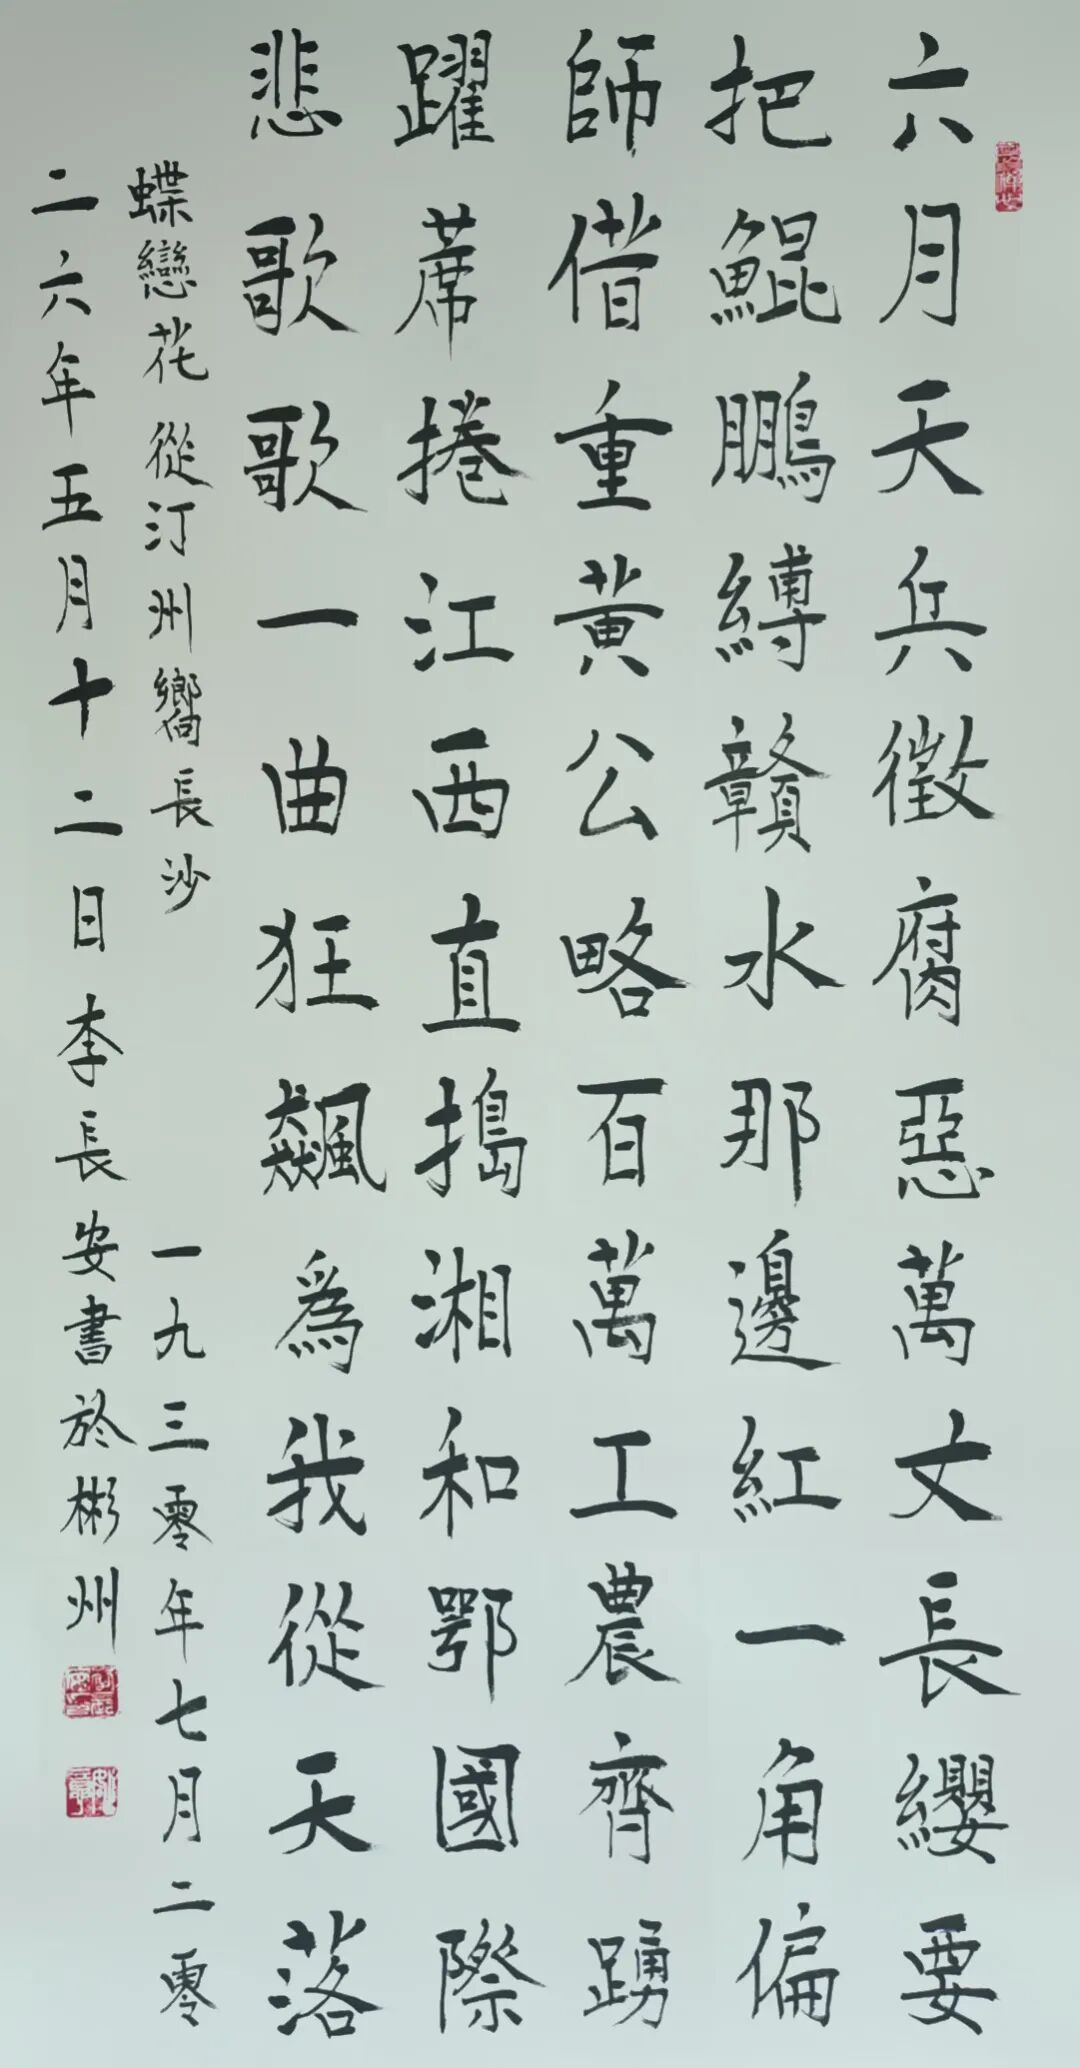 六月天兵徵腐惡萬丈長纓要
把鯤鵬縛贛水那邊紅一角偏
師借重黃公略百萬工農齊踴
躍蓆捲江西直搗湘和鄂國際
悲歌歌一曲狂飆爲我從天落
蝶戀花 從汀州嚮長沙 一九三零年七月二零
二六年五月十二日李長安書於彬州